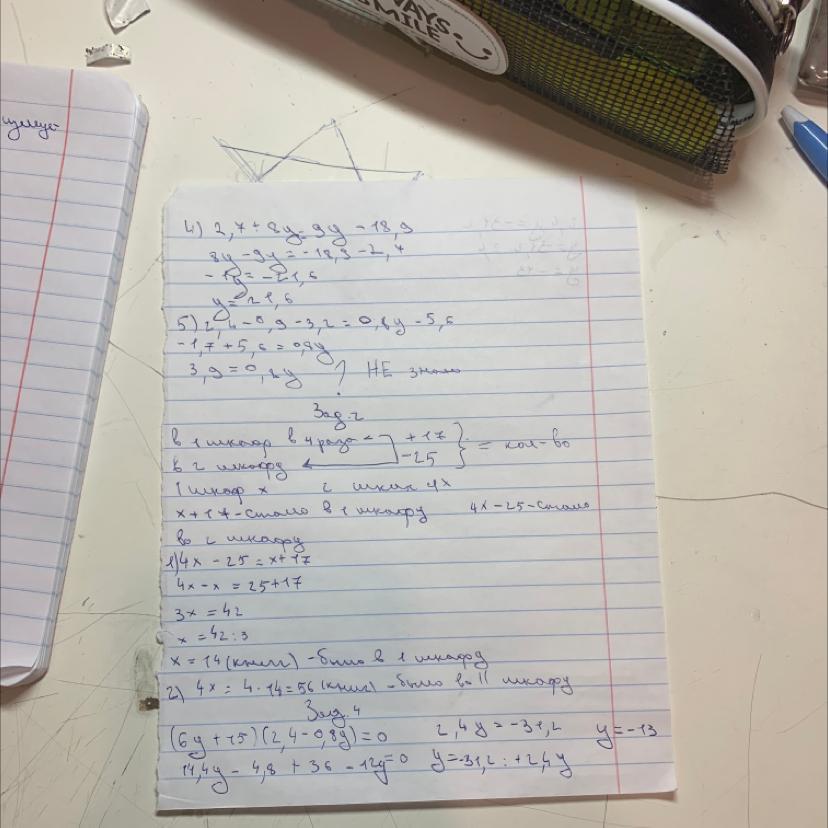 ALWAYS
SMILE
4) 2,7+8y=9y-18,9
8y-9y=-18,9-2,7
-1y=-21,6
y=21,6
5) 2,4-0,9-3,2=0,8y-5,6
-1,7+5,6=0,8y
3,9=0,8y ? НЕ знаю
Зад. 2
в 1 шкафу в 4 раза +17
в 2 шкафу -25 } = кол-во
1 шкаф x 2 шкаф 4x
x+17-стало в 1 шкафу 4x-25-стало
во 2 шкафу
1) 4x-25=x+17
4x-x=25+17
3x=42
x=42:3
x=14 (книг) -было в 1 шкафу
2) 4x=4·14=56 (книг) -было во II шкафу
Зад. 4
(6y+15)(2,4-0,8y)=0 2,4y=-31,2 y=-13
14,4y-4,8+36-12y=0 y=-31,2:+2,4y